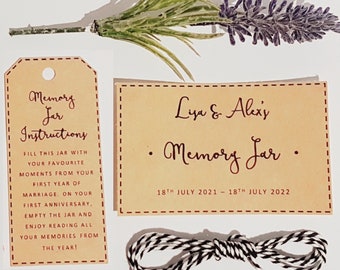 Memory
Jar
Instructions
FILL THIS JAR WITH
YOUR FAVOURITE
MOMENTS FROM YOUR
FIRST YEAR OF
MARRIAGE. ON YOUR
FIRST ANNIVERSARY,
EMPTY THE JAR AND
ENJOY READING ALL
YOUR MEMORIES FROM
THE YEAR!
Lisa & Alex's
• Memory Jar •
18TH JULY 2021 – 18TH JULY 2022